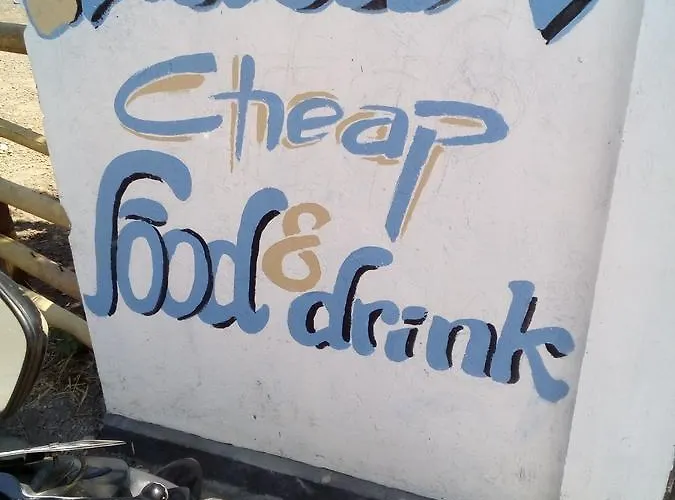 Cheap
food &
drink